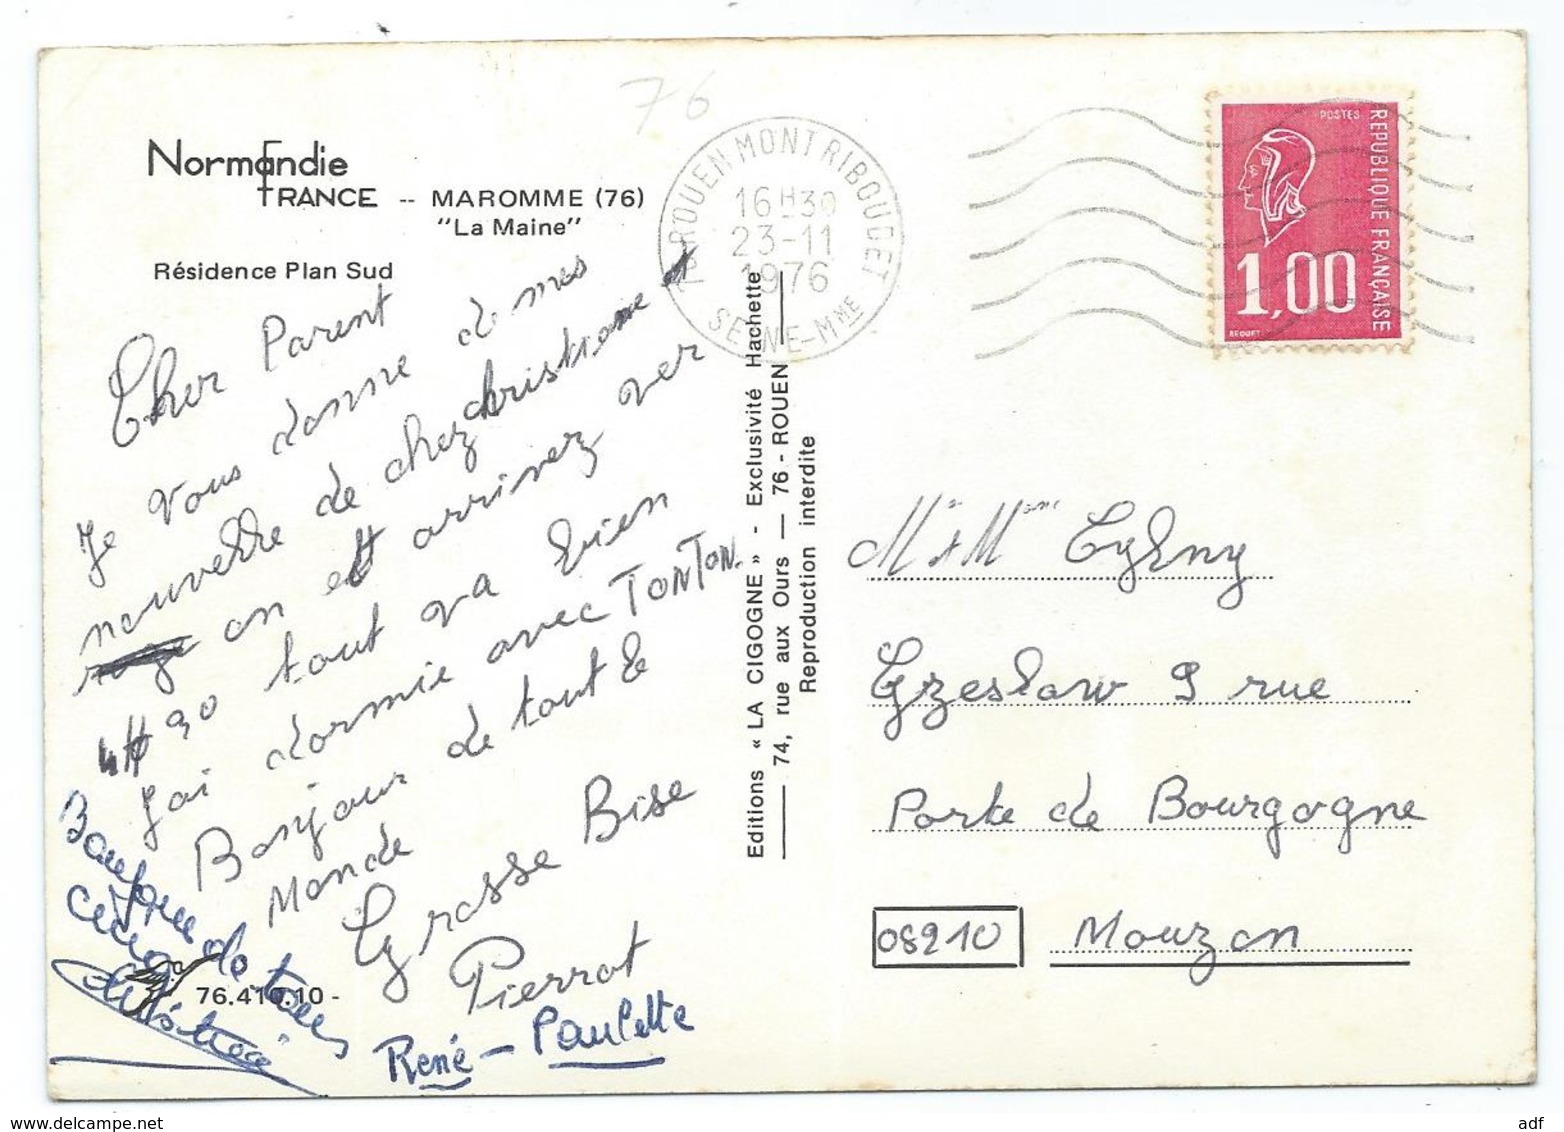 76
Normandie
FRANCE -- MAROMME (76)
"La Maine"
Résidence Plan Sud
ROUEN MONT RIBOUDET
16H30
23-11
1976
SEINE-MME
POSTES
REPUBLIQUE FRANÇAISE
1,00
BEQUET
Cher Parent
Je vous donne de mes
nouvelle de chez christiane et
on et arrivez ver
4H30 tout va bien
J'ai dormie avec TONTON.
Bonjour de tout le
Monde
Grosse Bise
Pierrot
René - Paulette
à tous
76.410.10 -
Editions « LA CIGOGNE » - Exclusivité Hachette
74, rue aux Ours — 76 - ROUEN
Reproduction interdite
Mr et Mme
9 rue
Porte de Bourgogne
08210 Mouzon
www.delcampe.net
adf